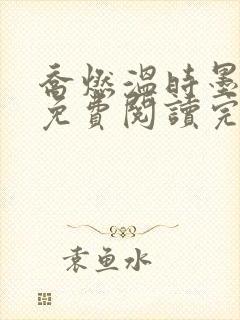 喬燃溫時墨
免費閱讀完
袁魚水